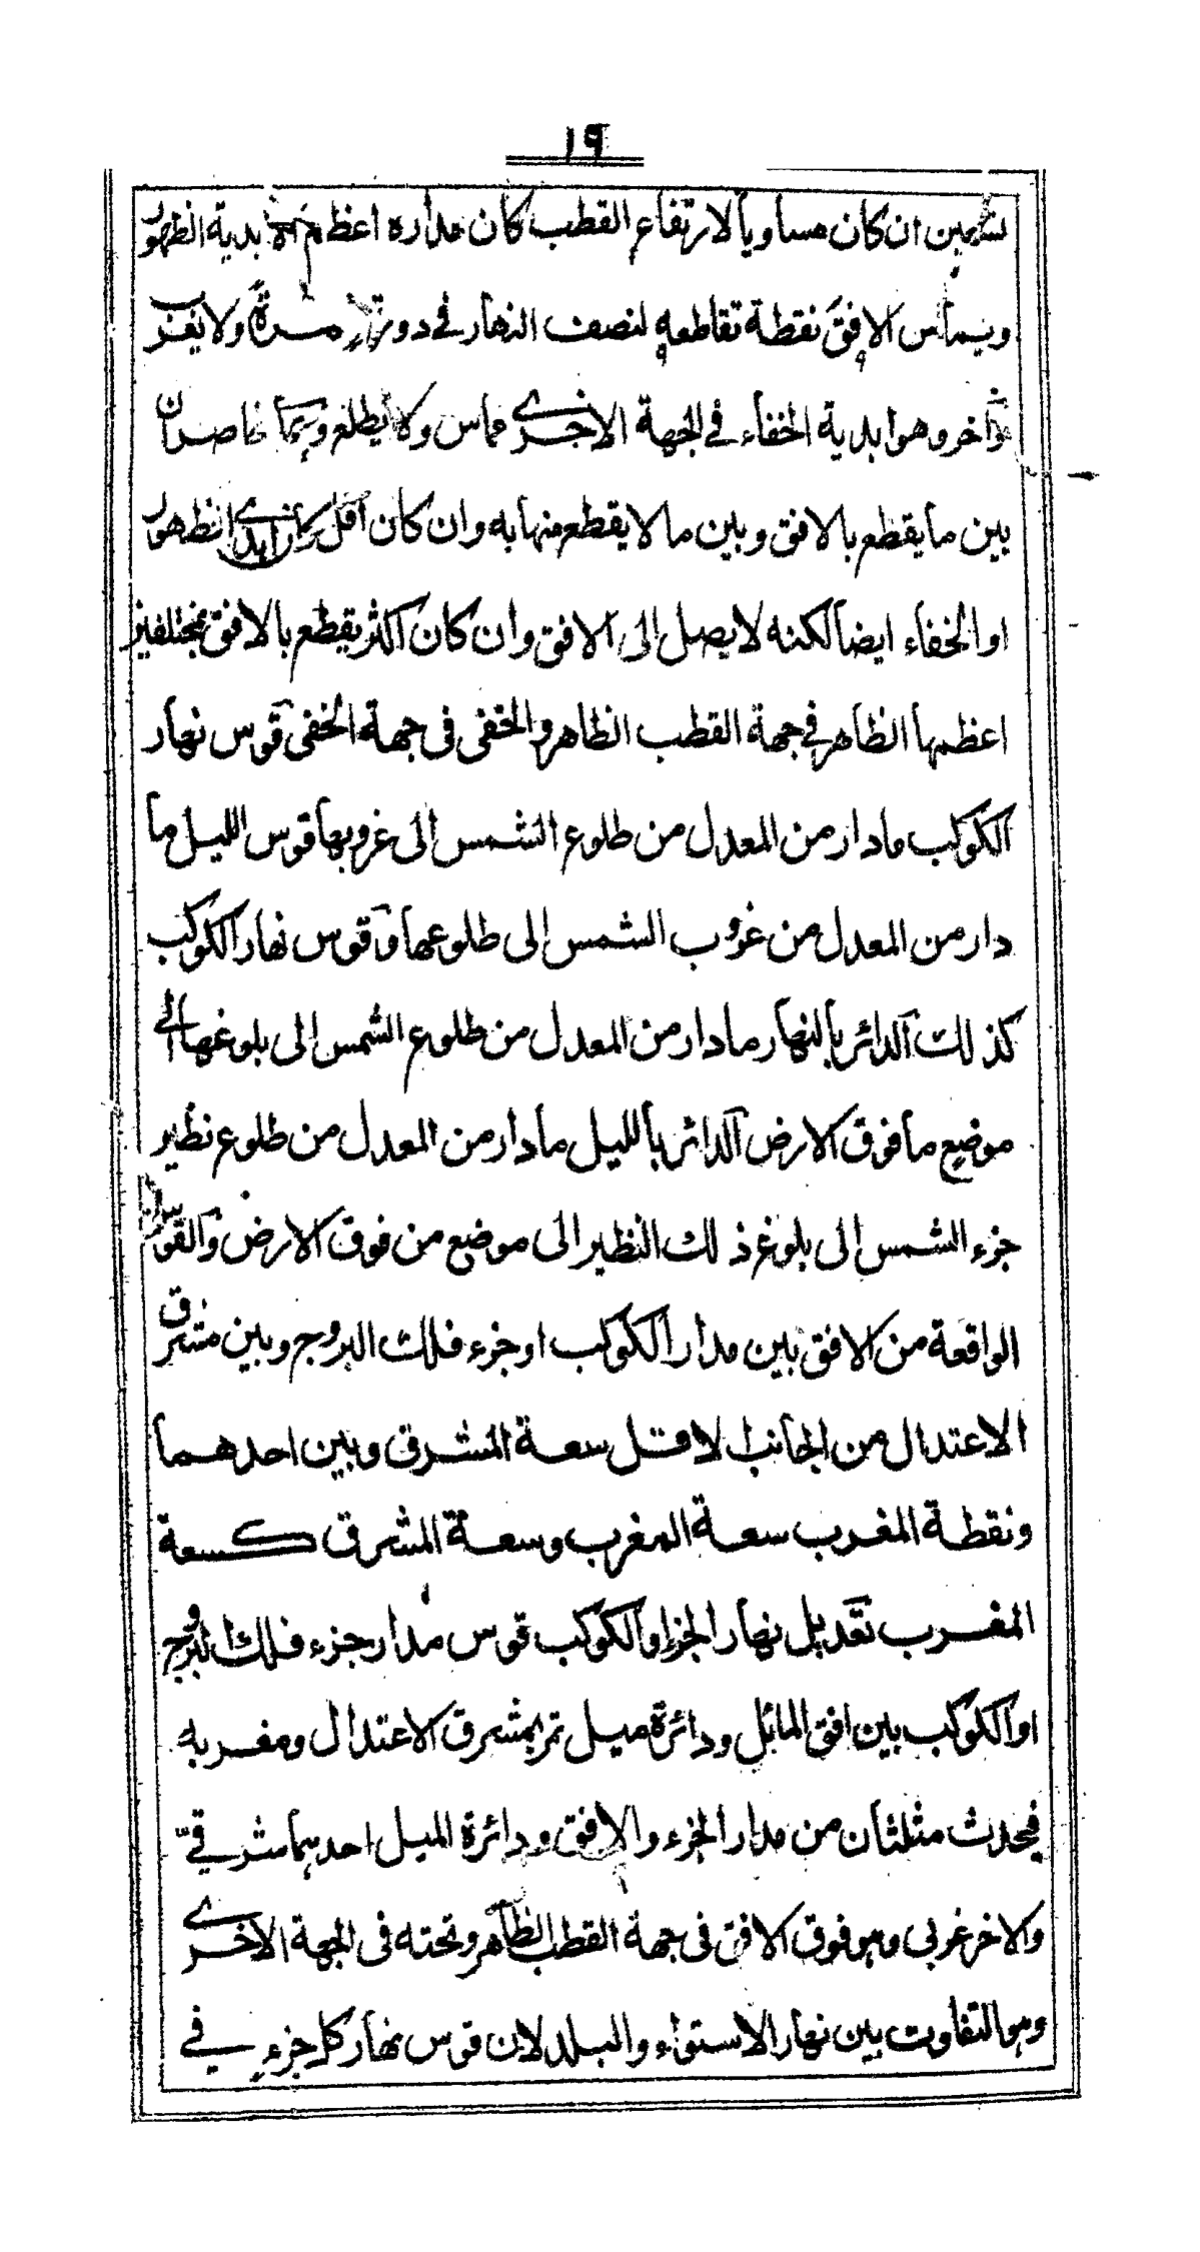 ١٩
ان كان مساويا لارتفاع القطب كان مداره اعظم الابدية الظهور
ويماس الافق نقطة تقاطعه لنصف النهار في دورته مرة ولا يغرب
وآخر وهو ابدية الخفاء في الجهة الاخرى مماس ولا يطلع وهما خاصران
بين ما يقطع بالافق وبين ما لا يقطع منها به وان كان اقل كان ابدى الظهور
او الخفاء ايضا لكنه لا يصل الى الافق وان كان اكثر يقطع بالافق بمختلفين
اعظمها الظاهر في جهة القطب الظاهر والخفى فى جهة الخفى قوس نهار
الكوكب ما دار من المعدل من طلوع الشمس الى غروبها قوس الليل ما
دار من المعدل من غروب الشمس الى طلوعها وقوس نهار الكوكب
كذلك الدائر بالنهار ما دار من المعدل من طلوع الشمس الى بلوغها الى
موضع ما فوق الارض الدائر بالليل ما دار من المعدل من طلوع نظير
جزء الشمس الى بلوغ ذلك النظير الى موضع من فوق الارض والقوس
الواقعة من الافق بين مدار الكوكب او جزء فلك البروج وبين مشرق
الاعتدال من الجانب الاقل سعة المشرق وبين احدهما
ونقطة المغرب سعة المغرب وسعة المشرق كسعة
المغرب تعديل نهار الجزء او الكوكب قوس مدار جزء فلك البروج
او الكوكب بين افق المائل ودائرة ميل تمر بمشرق الاعتدال ومغربه
فيحدث مثلثان من مدار الجزء والافق ودائرة الميل احدهما شرقيّ
والاخر غربى وهو فوق الافق فى جهة القطب الظاهر وتحته فى الجهة الاخرى
وهو التفاوت بين نهار الاستواء والبلد لان قوس نهار كل جزء في